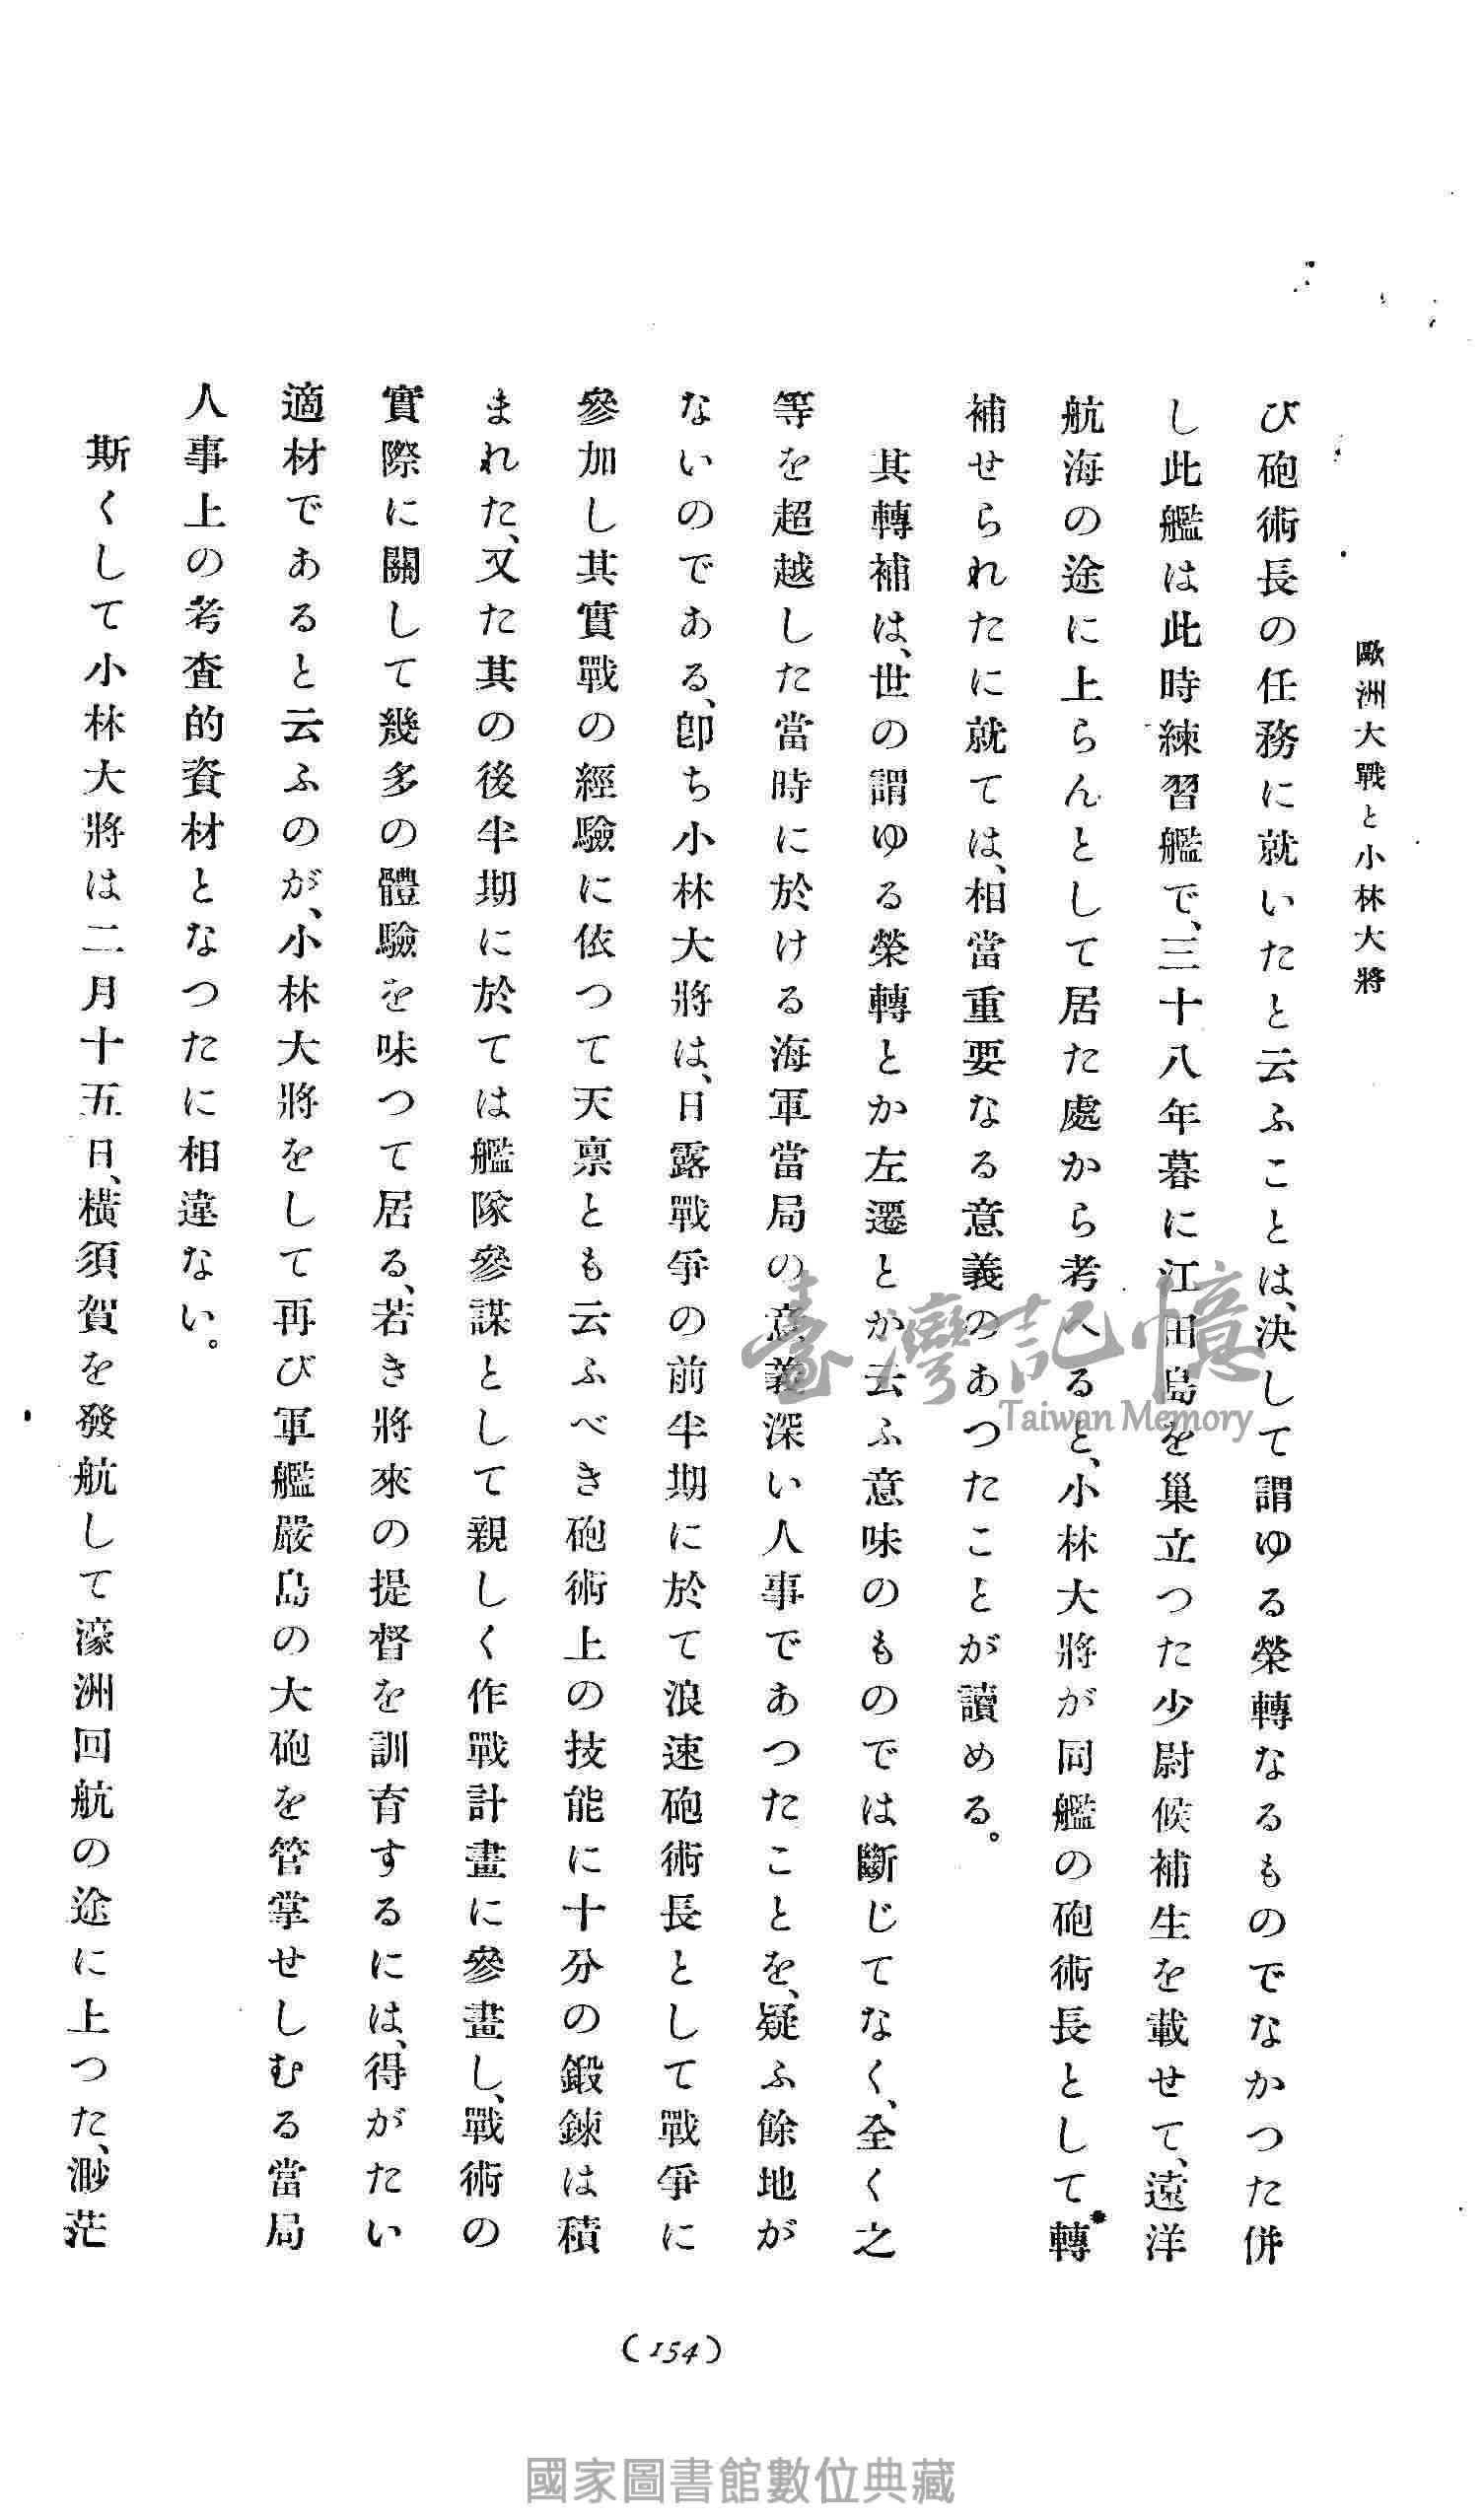 歐洲大戰と小林大將
び砲術長の任務に就いたと云ふことは、決して謂ゆる榮轉なるものでなかつた併
し此艦は此時練習艦で、三十八年暮に江田島を巢立つた少尉候補生を載せて、遠洋
航海の途に上らんとして居た處から考へると、小林大將が同艦の砲術長として轉
補せられたに就ては、相當重要なる意義のあつたことが讀める。
其轉補は、世の謂ゆる榮轉とか左遷とか云ふ意味のものでは斷じてなく、全く之
等を超越した當時に於ける海軍當局の意義深い人事であつたことを、疑ふ餘地が
ないのである、卽ち小林大將は、日露戰爭の前半期に於て浪速砲術長として戰爭に
參加し其實戰の經驗に依つて天禀とも云ふべき砲術上の技能に十分の鍛鍊は積
まれた、又た其の後半期に於ては艦隊參謀として親しく作戰計畫に參畫し、戰術の
實際に關して幾多の體驗を味つて居る、若き將來の提督を訓育するには、得がたい
適材であると云ふのが、小林大將をして再び軍艦嚴島の大砲を管掌せしむる當局
人事上の考査的資材となつたに相違ない。
斯くして小林大將は二月十五日、橫須賀を發航して濠洲回航の途に上つた、渺茫
(154)
臺灣記憶
Taiwan Memory
國家圖書館數位典藏